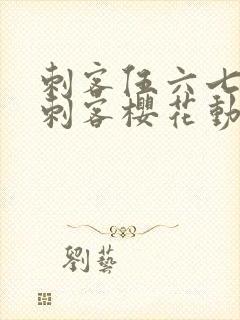 刺客伍六七
刺客櫻花動
劉藝